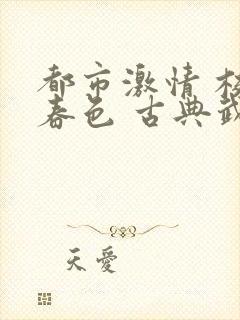 都市激情 校
春色 古典武
天愛